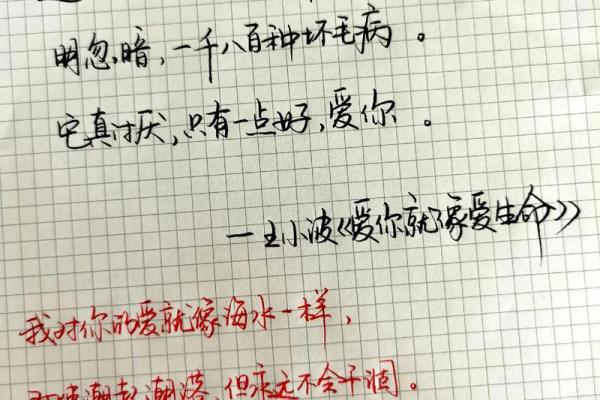 明忽暗，一千八百种坏毛病。
它真讨厌，只有一点好，爱你。
—王小波《爱你就像爱生命》
我对你的爱就像海水一样，
潮起潮落，但永远不会干涸。